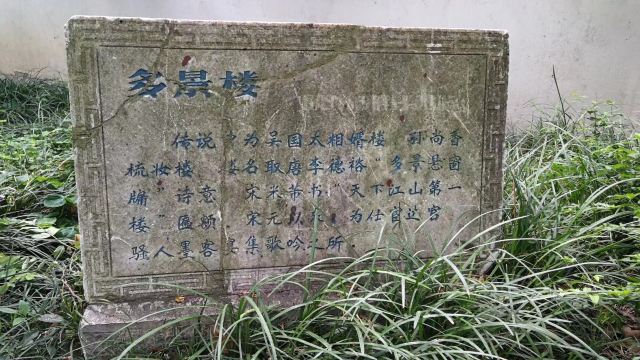 多景楼
传说 为吴国太相婿楼，孙尚香
梳妆楼 楼名取唐李德裕"多景悬窗
牗"诗意 宋米芾书"天下江山第一
楼"匾额 宋元 为仕宦达官
骚人墨客宴集歌吟之所.